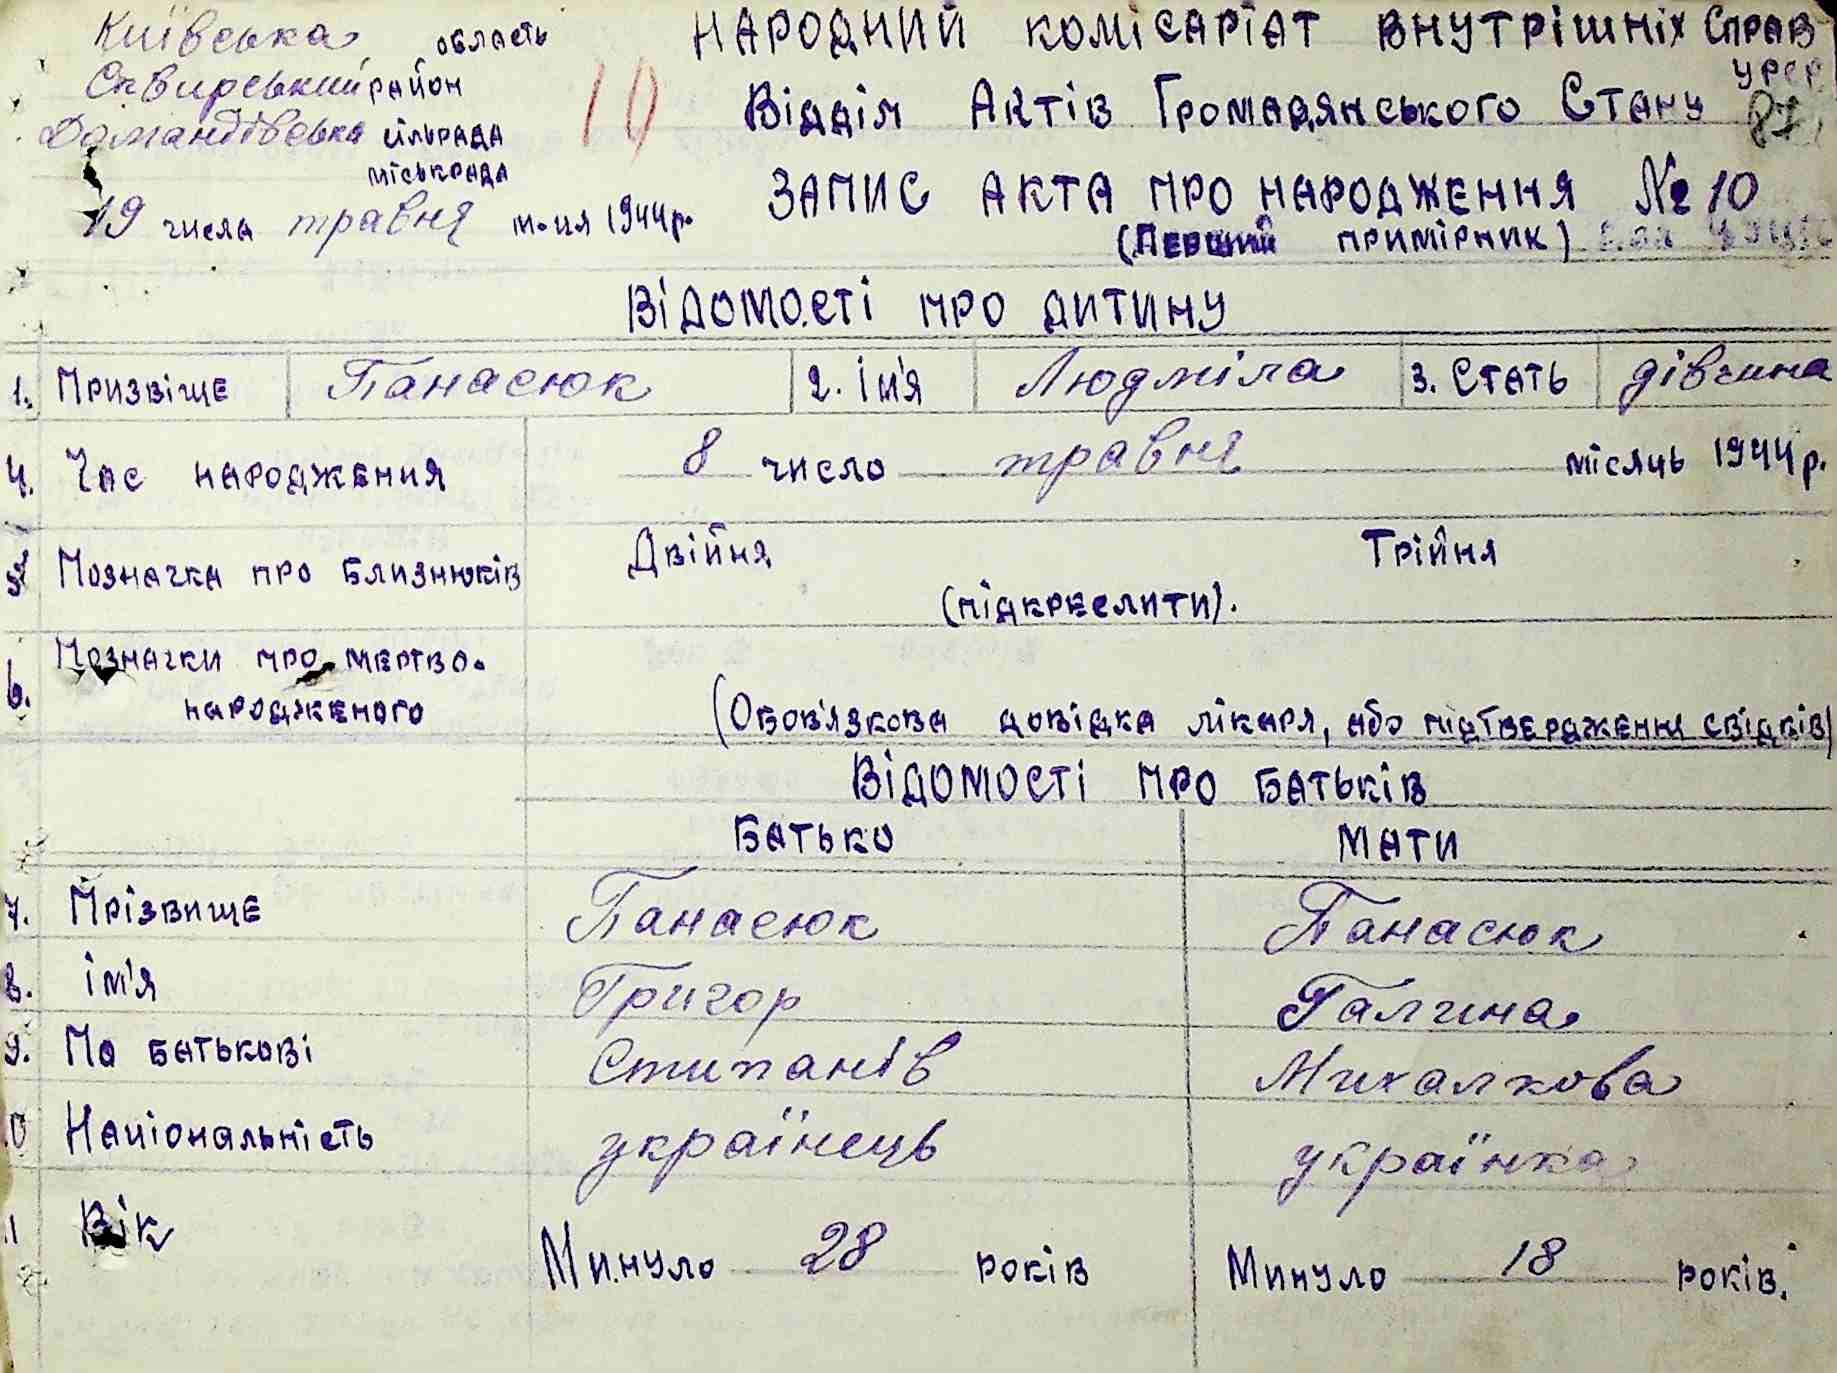 Київська область
Сквирський район
Домантівська сільрада
міськрада
19 числа травня м-ця 1944 р.
10
Народний комісаріат внутрішніх справ
УРСР
Відділ Актів Громадянського Стану
87
Запис акта про народження № 10
(Перший примірник)
Відомості про дитину
1. Призвіще Панасюк 2. Ім'я Людміла 3. Стать дівчина
4. Час народження 8 число травня місяць 1944 р.
5. Позначка про близнюків Двійня Трійня
(підкреслити).
6. Позначки про мертво-
народженого
(Обов'язкова довідка лікаря, або підтвердження свідків)
Відомості про батьків
Батько Мати
7. Прізвище Панасюк Панасюк
8. ім'я Григор Галина
9. По батькові Стипанів Михалкова
10 Національність українець українка
11 Вік Минуло 28 років Минуло 18 років.